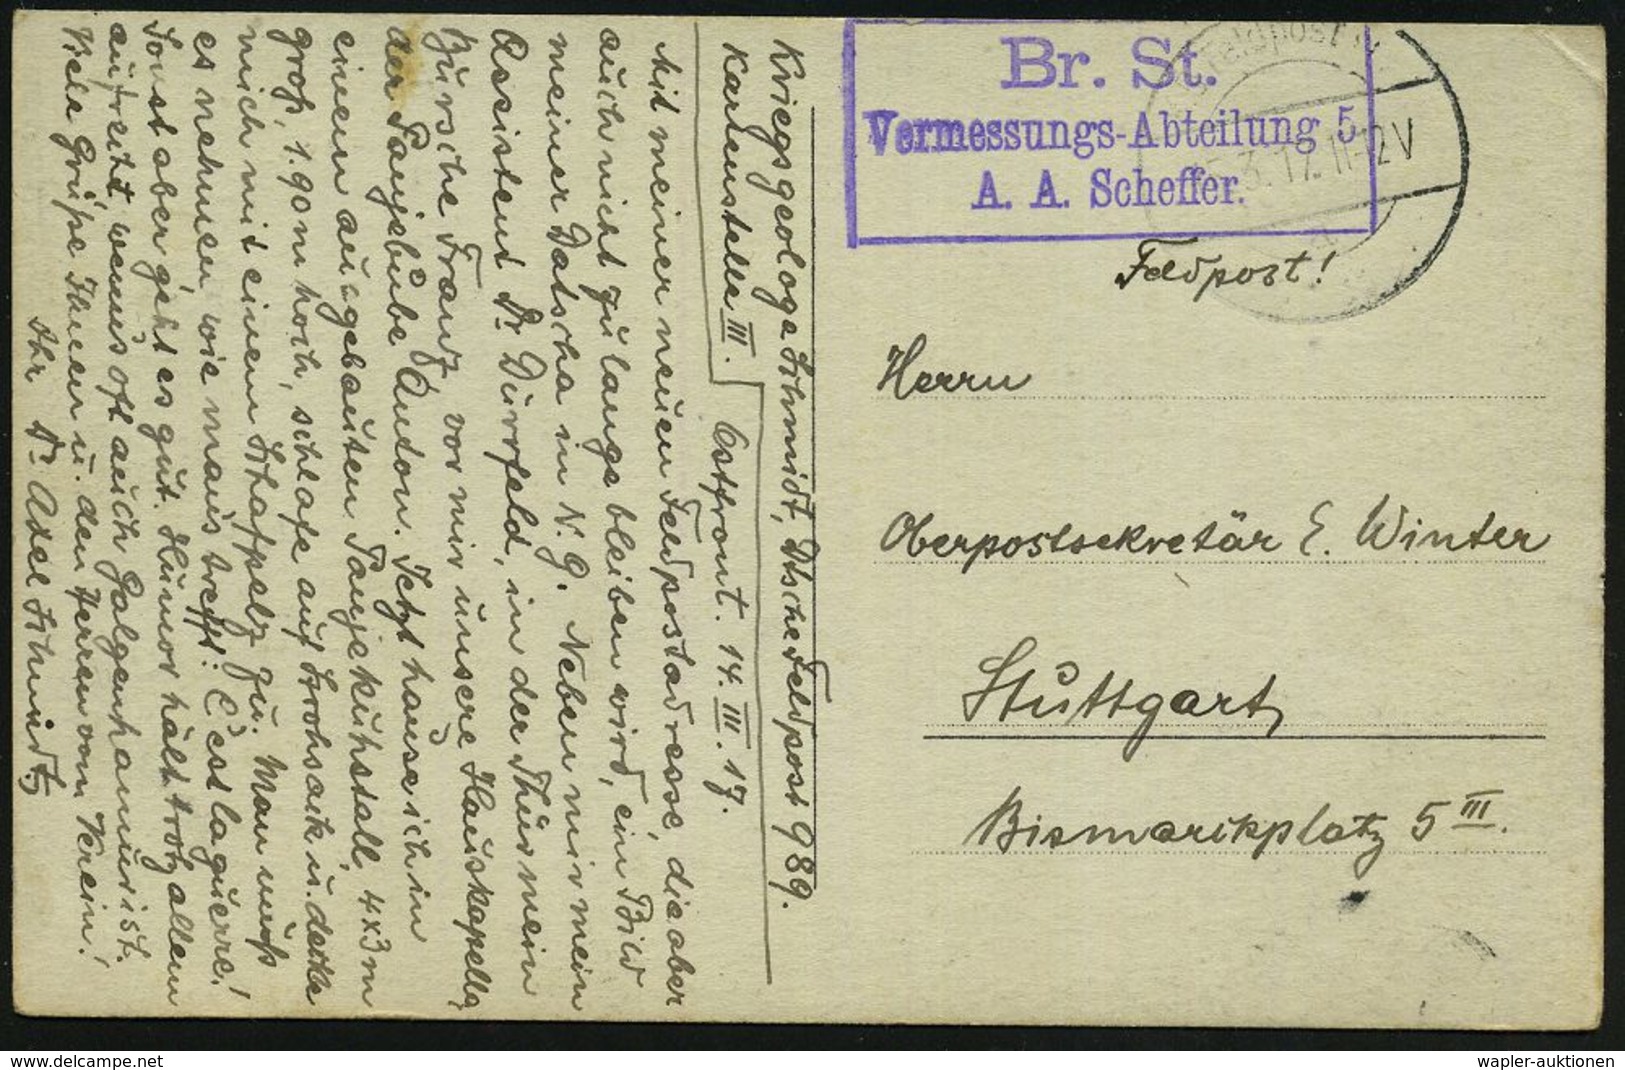 Kriegsgeologe Schmidt, Dtsche Feldpost 989.
Kartenstelle III.
Ostfront. 14. III. 17.
Mit meiner neuen Feldpostadresse, die aber
auch nicht zu lange bleiben wird, ein Bild
meiner Datscha in N. G. Neben mir mein
Assistent Dr Dürrfeld, in der Thür mein
Bursche Franz, vor mir unsere Hauskapelle,
der Panjebube Anton. Jetzt hause ich in
einem ausgebauten Panjekuhstall, 4x3 m
groß, 1.90 m hoch, schlafe auf Strohsack u. decke
mich mit einem Schafpelz zu. Man muß
es nehmen wie man's trefft: C'est la guerre!
Sonst aber geht es gut. Humor hält trotz allem
aufrecht, wenn's oft auch Galgenhumor ist.
Viele Grüße Ihnen u. den Herren vom Verein!
Ihr Dr Axel Schmidt.
Br. St.
Vermessungs-Abteilung 5
A. A. Scheffer.
Feldpost
3. 17. 11-12V
Feldpost!
Herrn
Oberpostsekretär E. Winter
Stuttgart
Bismarckplatz 5 III.
www.delcampe.net
wapler-auktionen